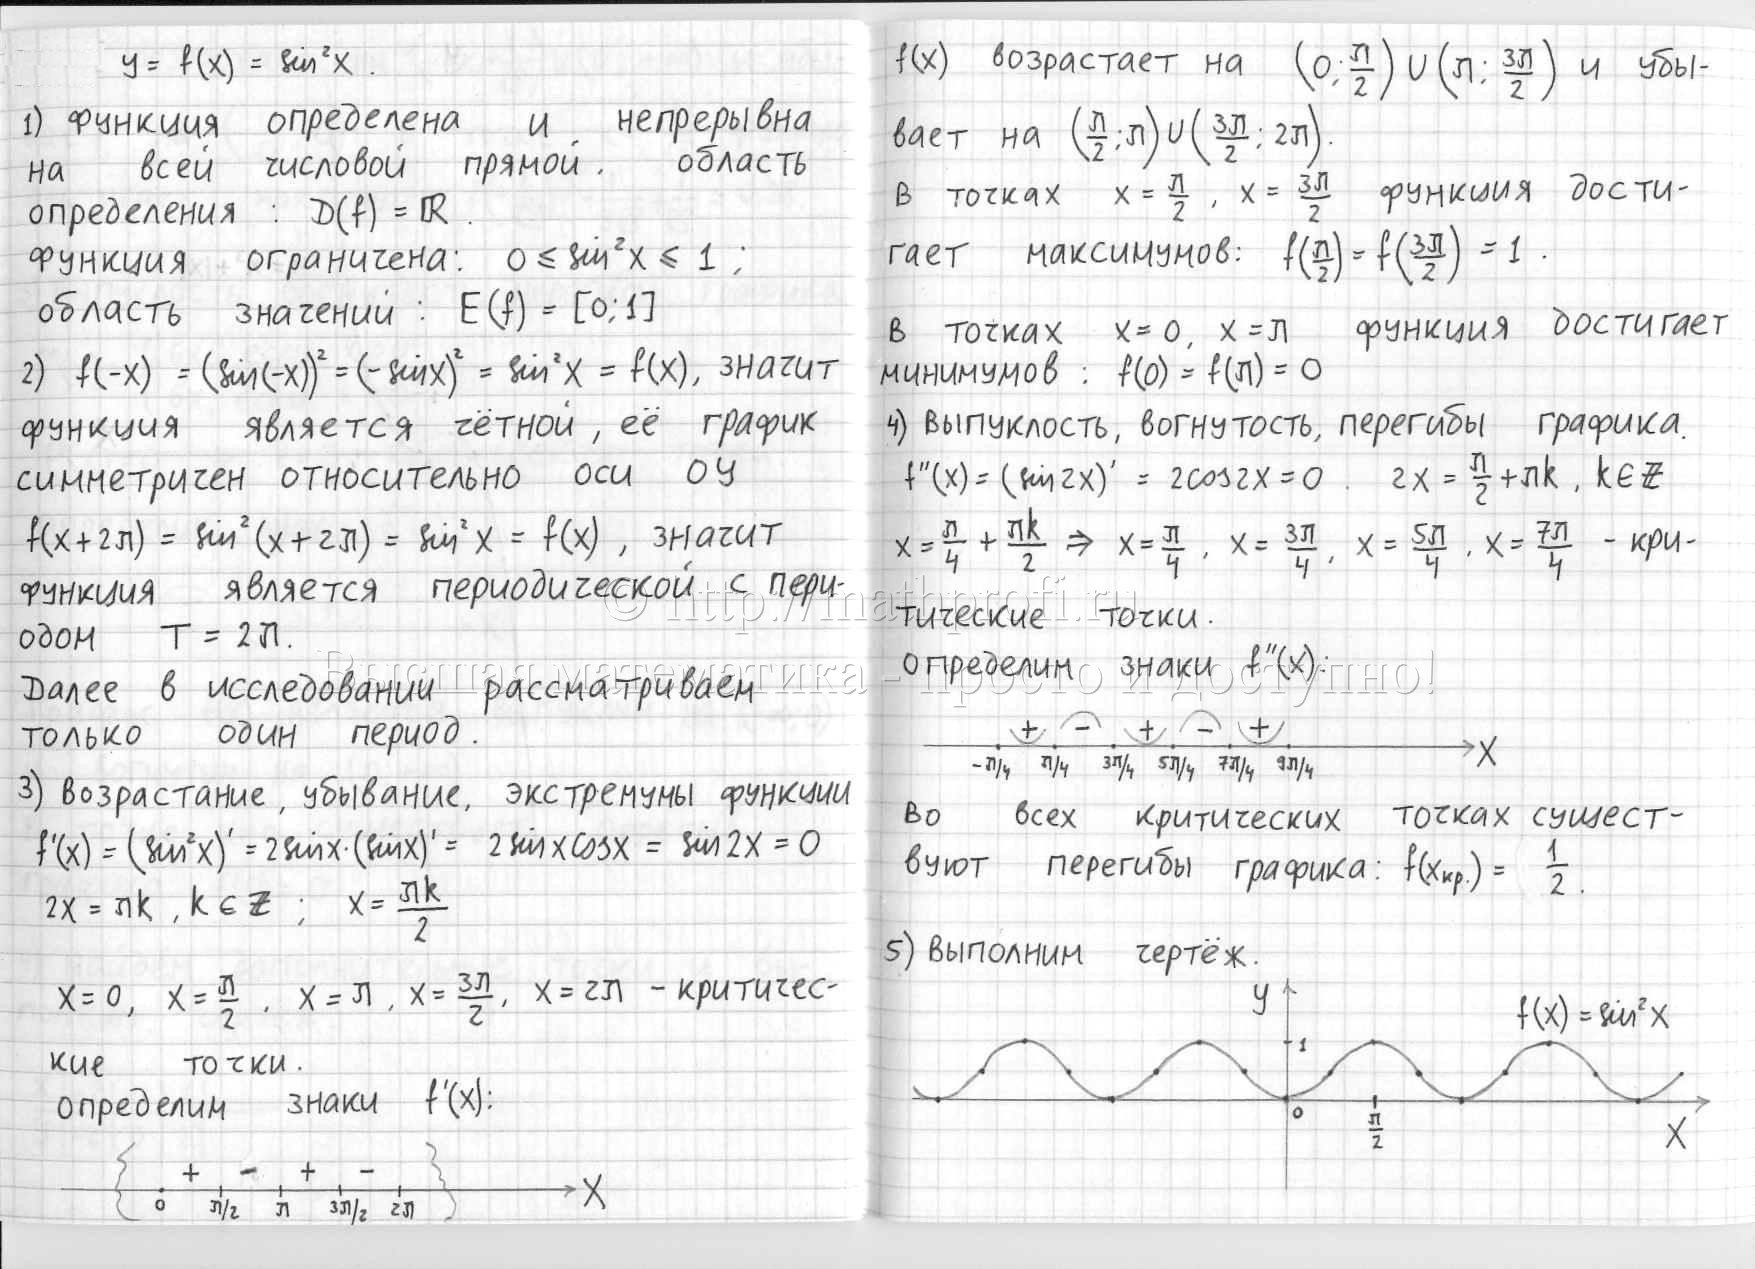 y = f(x) = sin²x.
1) Функция определена и непрерывна
на всей числовой прямой. Область
определения: D(f) = ℝ.
Функция ограничена: 0 ≤ sin²x ≤ 1;
область значений: E(f) = [0;1]
2) f(-x) = (sin(-x))² = (-sinx)² = sin²x = f(x), значит
функция является чётной, её график
симметричен относительно оси OY
f(x+2π) = sin²(x+2π) = sin²x = f(x), значит
функция является периодической с пери-
одом T = 2π.
Далее в исследовании рассматриваем
только один период.
3) Возрастание, убывание, экстремумы функции
f'(x) = (sin²x)' = 2sinx·(sinx)' = 2sinxcosx = sin2x = 0
2x = πk, k∈ℤ; x = πk/2
x=0, x=π/2, x=π, x=3π/2, x=2π - критичес-
кие точки.
Определим знаки f'(x):
+ - + -
0 π/2 π 3π/2 2π X
f(x) возрастает на (0;π/2)∪(π;3π/2) и убы-
вает на (π/2;π)∪(3π/2;2π).
В точках x=π/2, x=3π/2 функция дости-
гает максимумов: f(π/2)=f(3π/2)=1.
В точках x=0, x=π функция достигает
минимумов: f(0)=f(π)=0
4) Выпуклость, вогнутость, перегибы графика.
f''(x) = (sin2x)' = 2cos2x = 0. 2x = π/2+πk, k∈ℤ
x = π/4 + πk/2 ⇒ x=π/4, x=3π/4, x=5π/4, x=7π/4 - кри-
тические точки.
© http://mathprofi.ru
Определим знаки f''(x):
Высшая математика - просто и доступно!
+ - + - +
-π/4 π/4 3π/4 5π/4 7π/4 9π/4 X
Во всех критических точках сущест-
вуют перегибы графика: f(xкр.) = 1/2.
5) Выполним чертёж.
y
f(x) = sin²x
1
0 π/2 X